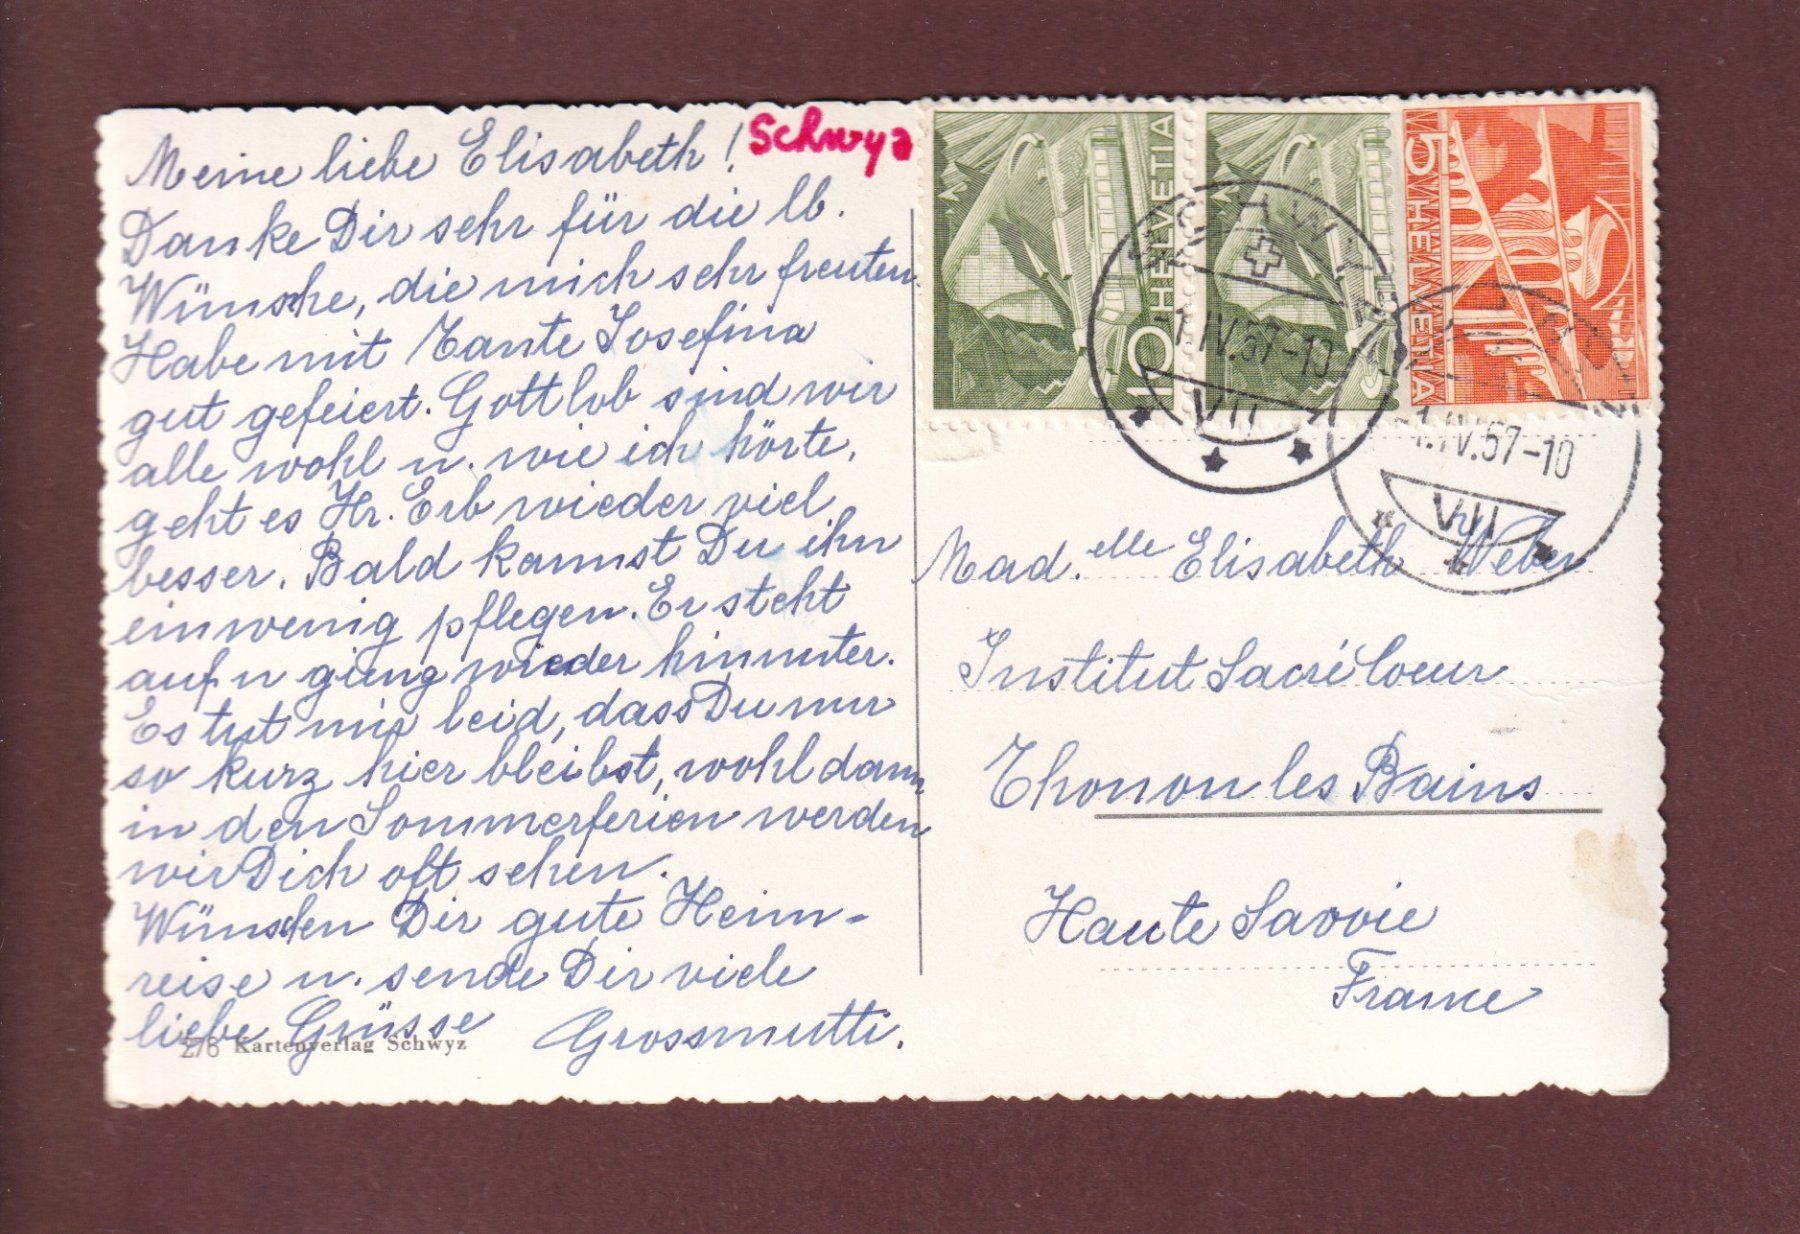 Meine liebe Elisabeth!
Schwyz
Danke Dir sehr für die lb.
Wünsche, die mich sehr freuten.
Habe mit Tante Josefina
gut gefeiert. Gottlob sind wir
alle wohl u. wie ich hörte,
geht es Hr. Erb wieder viel
besser. Bald kannst Du ihn
ein wenig pflegen. Er steht
auf u gieng wieder hinunter.
Es tut mir leid, dass Du nur
so kurz hier bleibst, wohl dann
in den Sommerferien werden
wir Dich oft sehen.
Wünschen Dir gute Heim-
reise u. sende Dir viele
liebe Grüsse Grossmutti.
276 Kartenverlag Schwyz
HELVETIA 10
5 HELVETIA
SCHWYZ
1.IV.57-10
VII
1.IV.57-10
VII
Mad.elle Elisabeth Weber
Institut Sacré Coeur
Thonon les Bains
Haute Savoie
France